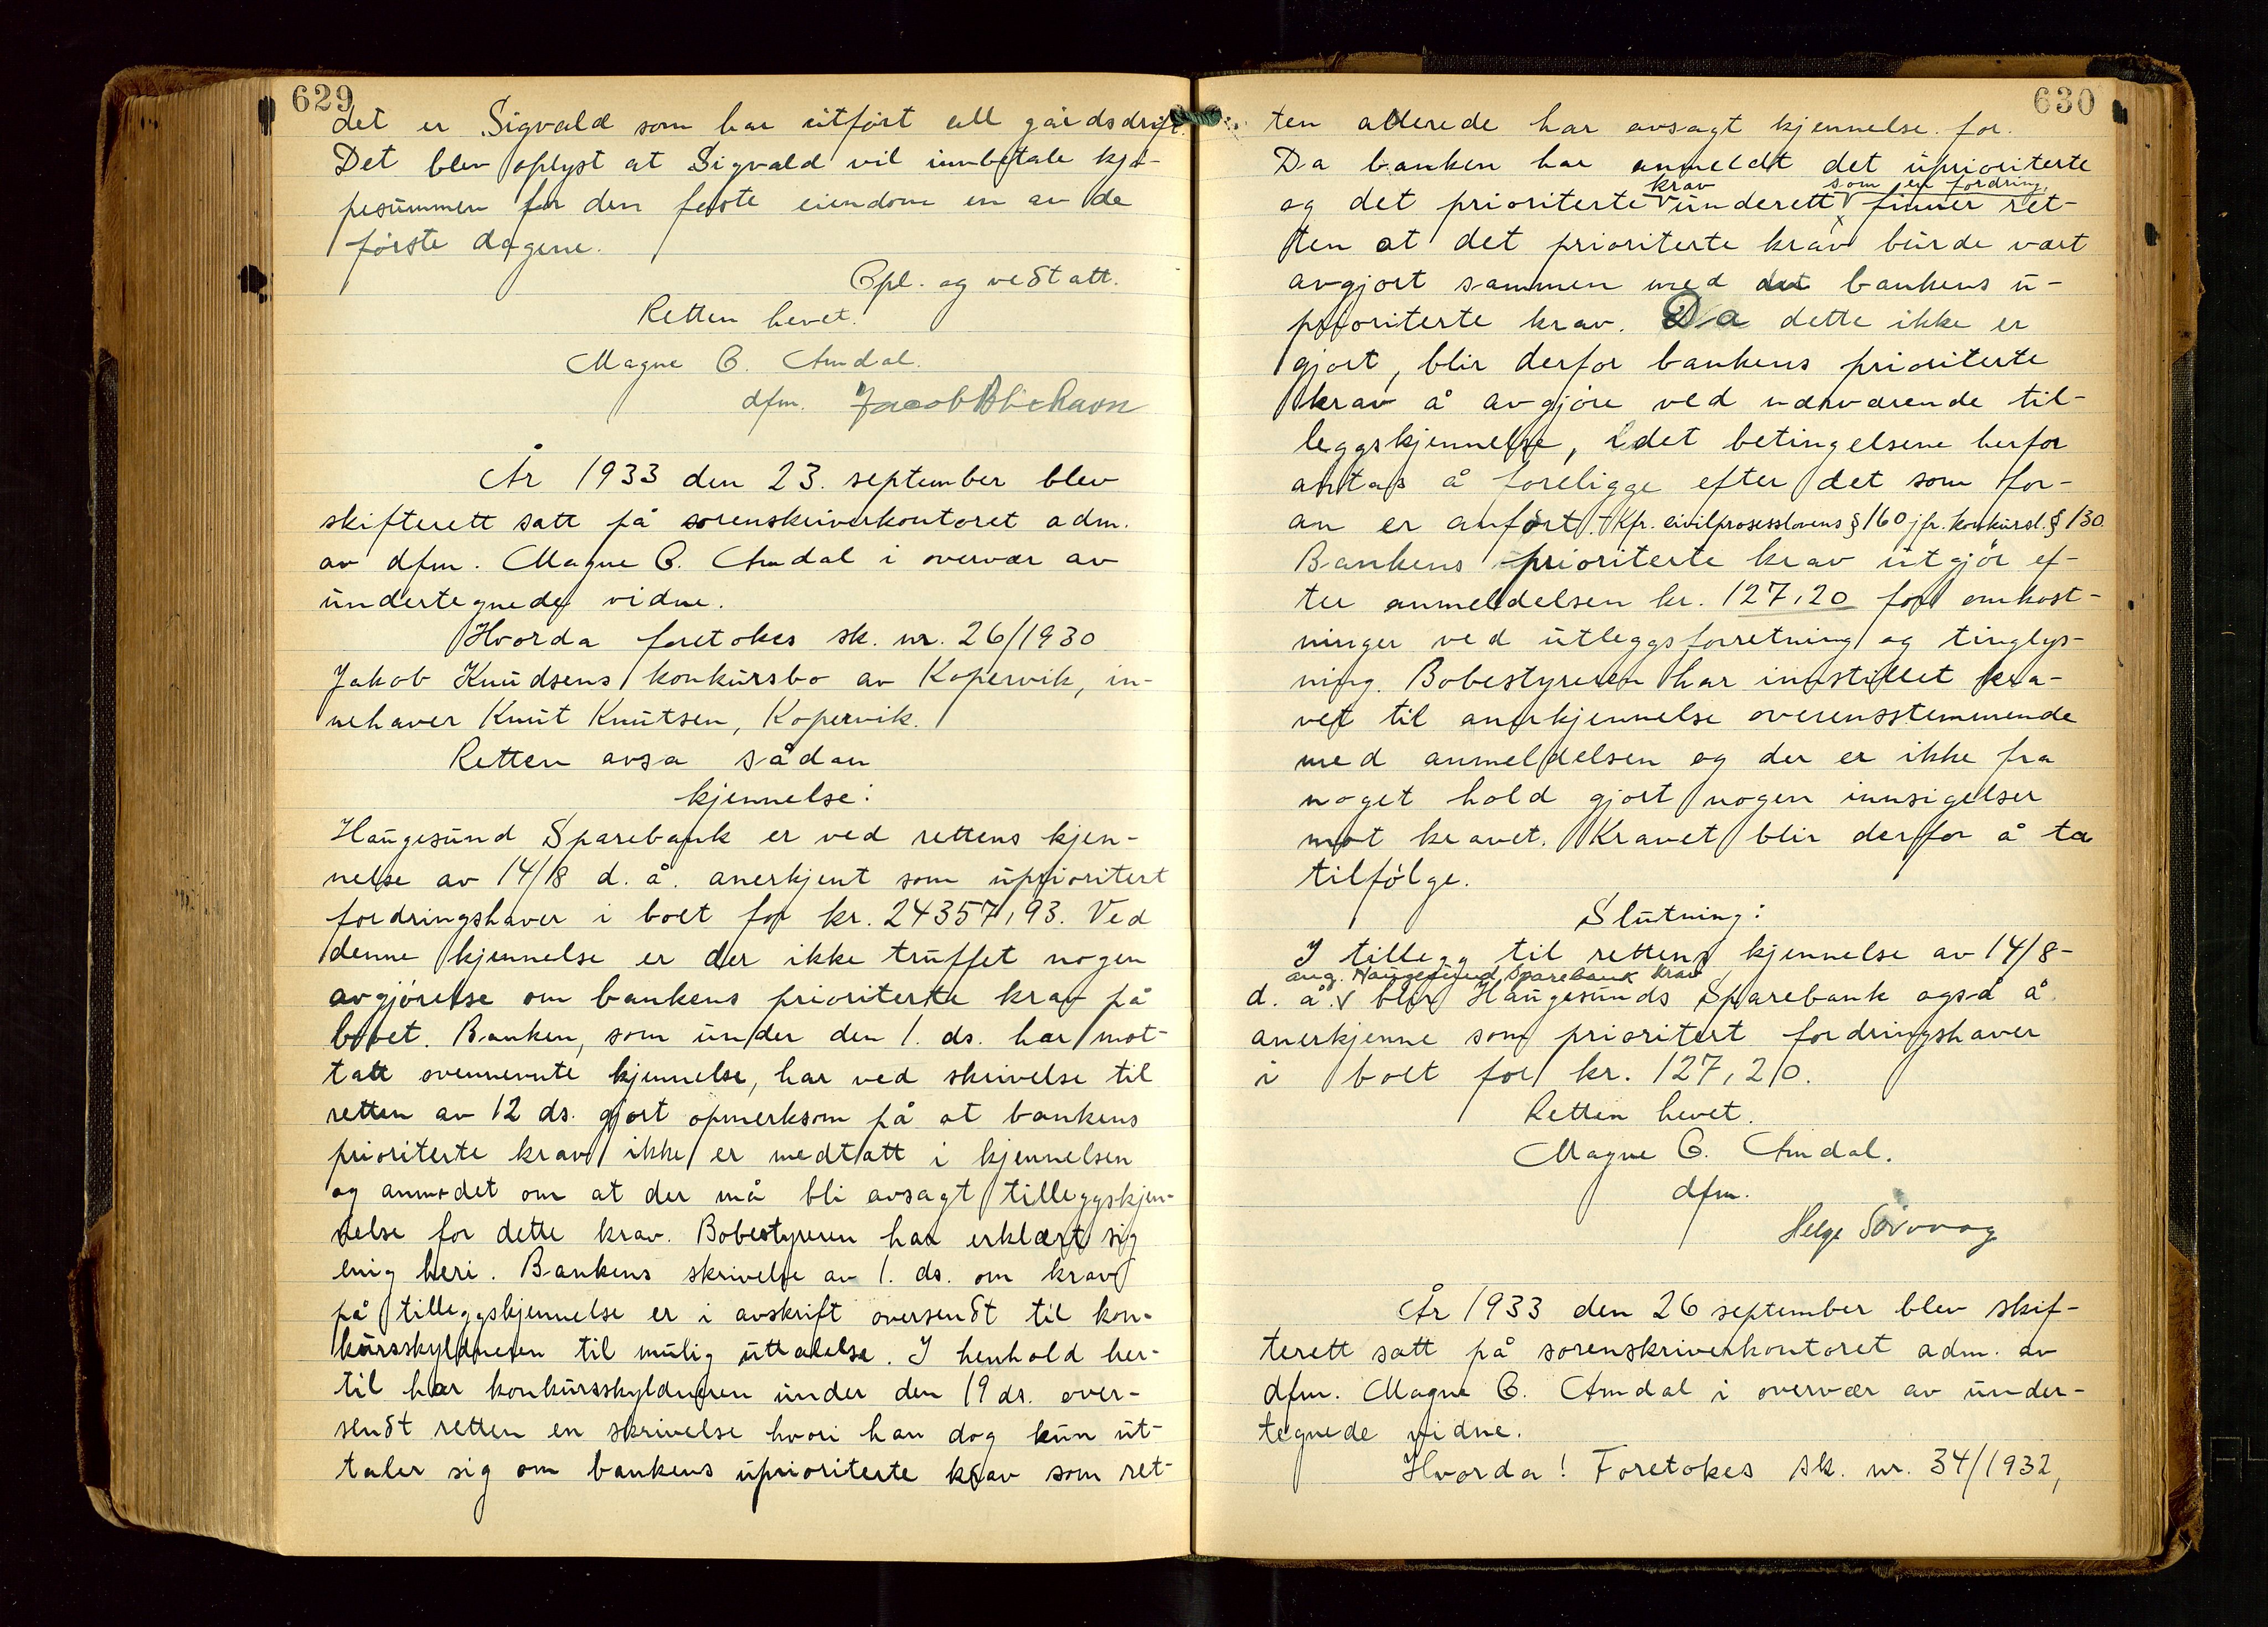 629
det er Sigvald som har utført all gårdsdrift.
Det blev oplyst at Sigvald vil innbetale kjø-
pesummen for den faste eiendom en av de
første dagene.
Opl. og vedtatt.
Retten hevet.
Magne O. Amdal.
dfm. Jacob
År 1933 den 23. september blev
skifterett satt på sorenskriverkontoret adm.
av dfm. Magne O. Amdal i overvær av
undertegnede vidne.
Hvorda foretokes sk. nr. 26/1930
Jakob Knudsens konkursbo av Kopervik, in-
nehaver Knut Knutsen, Kopervik.
Retten avsa sådan
kjennelse:
Haugesund Sparebank er ved rettens kjen-
nelse av 14/8 d. å. anerkjent som uprioritert
fordringshaver i boet for kr. 24357,93. Ved
denne kjennelse er der ikke truffet nogen
avgjørelse om bankens prioriterte krav på
boet. Banken, som under den 1. ds. har mot-
tatt ovennevnte kjennelse, har ved skrivelse til
retten av 12 ds. gjort opmerksom på at bankens
prioriterte krav ikke er medtatt i kjennelsen
og anmodet om at der må bli avsagt tilleggskjen-
nelse for dette krav. Bobestyreren har erklært sig
enig heri. Bankens skrivelse av 1. ds. om krav
på tilleggskjennelse er i avskrift oversendt til kon-
kursskyldneren til mulig uttalelse. I henhold her-
til har konkursskyldneren under den 19 ds. over-
sendt retten en skrivelse hvori han dog kun ut-
taler sig om bankens uprioriterte krav som ret-
630
ten allerede har avsagt kjennelse for.
Da banken har anmeldt det uprioriterte
krav som en fordring,
og det prioriterte v underett v finner ret-
ten at det prioriterte krav burde vært
avgjort sammen med det bankens u-
prioriterte krav. Da dette ikke er
gjort, blir derfor bankens prioriterte
krav å avgjøre ved nærværende til-
leggskjennelse, idet betingelsene herfor
antas å foreligge efter det som for-
an er anført. Kfr. civilprosesslovens § 160 jfr. konkursl. § 130.
Bankens prioriterte krav utgjør ef-
ter anmeldelsen kr. 127,20 for omkost-
ninger ved utleggsforretning og tinglys-
ning. Bobestyreren har innstillet kra-
vet til anerkjennelse overensstemmende
med anmeldelsen og der er ikke fra
noget hold gjort nogen innsigelser
mot kravet. Kravet blir derfor å ta
tilfølge.
Slutning:
I tillegg til rettens kjennelse av 14/8-
ang. Haugesund Sparebank krav
d. å. v blir Haugesunds Sparebank også å
anerkjenne som prioritert fordringshaver
i boet for kr. 127,20.
Retten hevet.
Magne O. Amdal.
dfm.
Helge
År 1933 den 26 september blev skif-
terett satt på sorenskriverkontoret adm. av
dfm. Magne O. Amdal i overvær av under-
tegnede vidne.
Hvorda! Foretokes sk. nr. 34/1932,